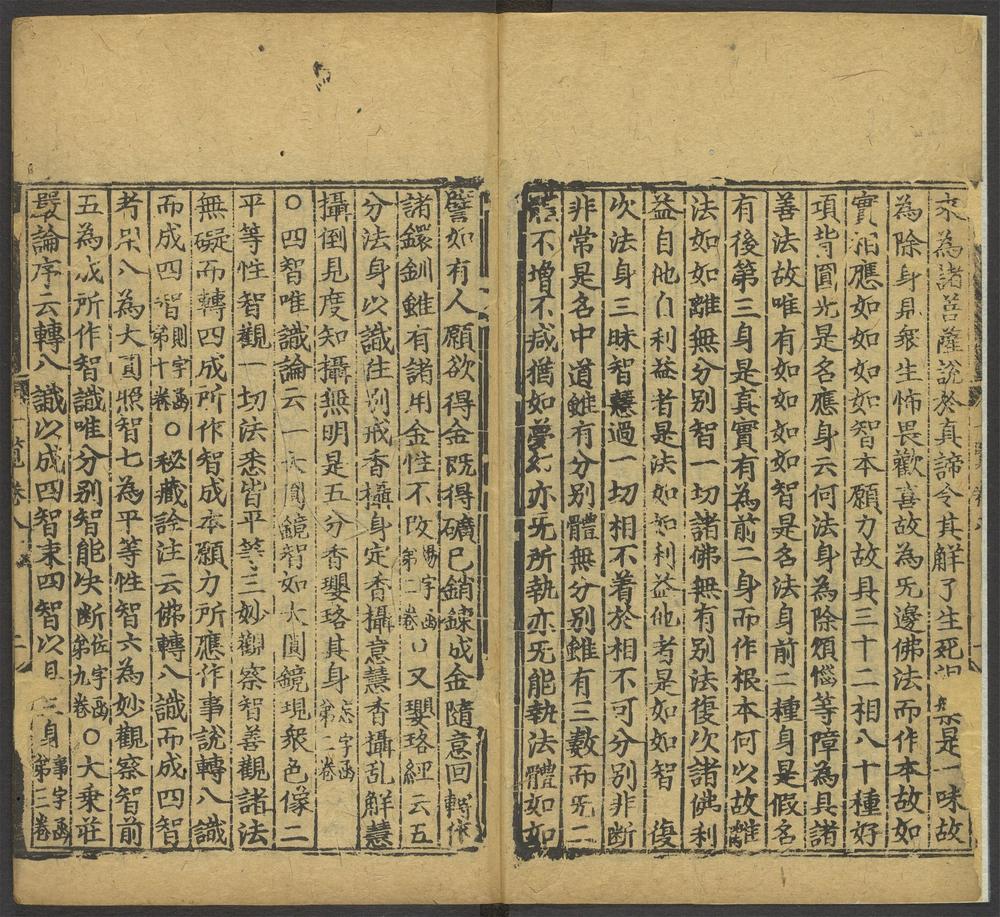 來為諸菩薩說於真諦令其解了生死涅槃是一味故
為除身見衆生怖畏歡喜故為旡邊佛法而作本故如
實相應如如如如智本願力故具三十二相八十種好
項背圓光是名應身云何法身為除煩惱等障為具諸
善法故唯有如如如如智是名法身前二種身是假名
有後第三身是真實有為前二身而作根本何以故離
法如如離無分别智一切諸佛無有别法復次諸佛利
益自他自利益者是法如如利益他者是如如智 復
次法身三昧智慧過一切相不着於相不可分别非斷
非常是名中道雖有分别體無分别雖有三數而旡二
體不增不減猶如夢幻亦旡所執亦旡能執法體如如
譬如有人願欲得金既得礦已銷鍊成金隨意回轉作
諸鐶釧雖有諸用金性不改 字函第二卷 ○又瓔珞經云五
分法身以識性别戒香攝身定香攝意慧香攝乱解慧
攝倒見度知攝無明是五分香瓔珞其身 字函第二卷
○四智唯識論云一大圓鏡智如大圓鏡現衆色像二
平等性智觀一切法悉皆平等三妙觀察智善觀諸法
無礙而轉四成所作智成本願力所應作事說轉八識
而成四智 則字函第十卷 ○秘藏詮注云佛轉八識而成四智
者第八為大圓照智七為平等性智六為妙觀察智前
五為成所作智識唯分别智能决断 佐字函第九卷 ○大乗莊
嚴論序云轉八識以成四智束四智以具三身 事字函第三卷